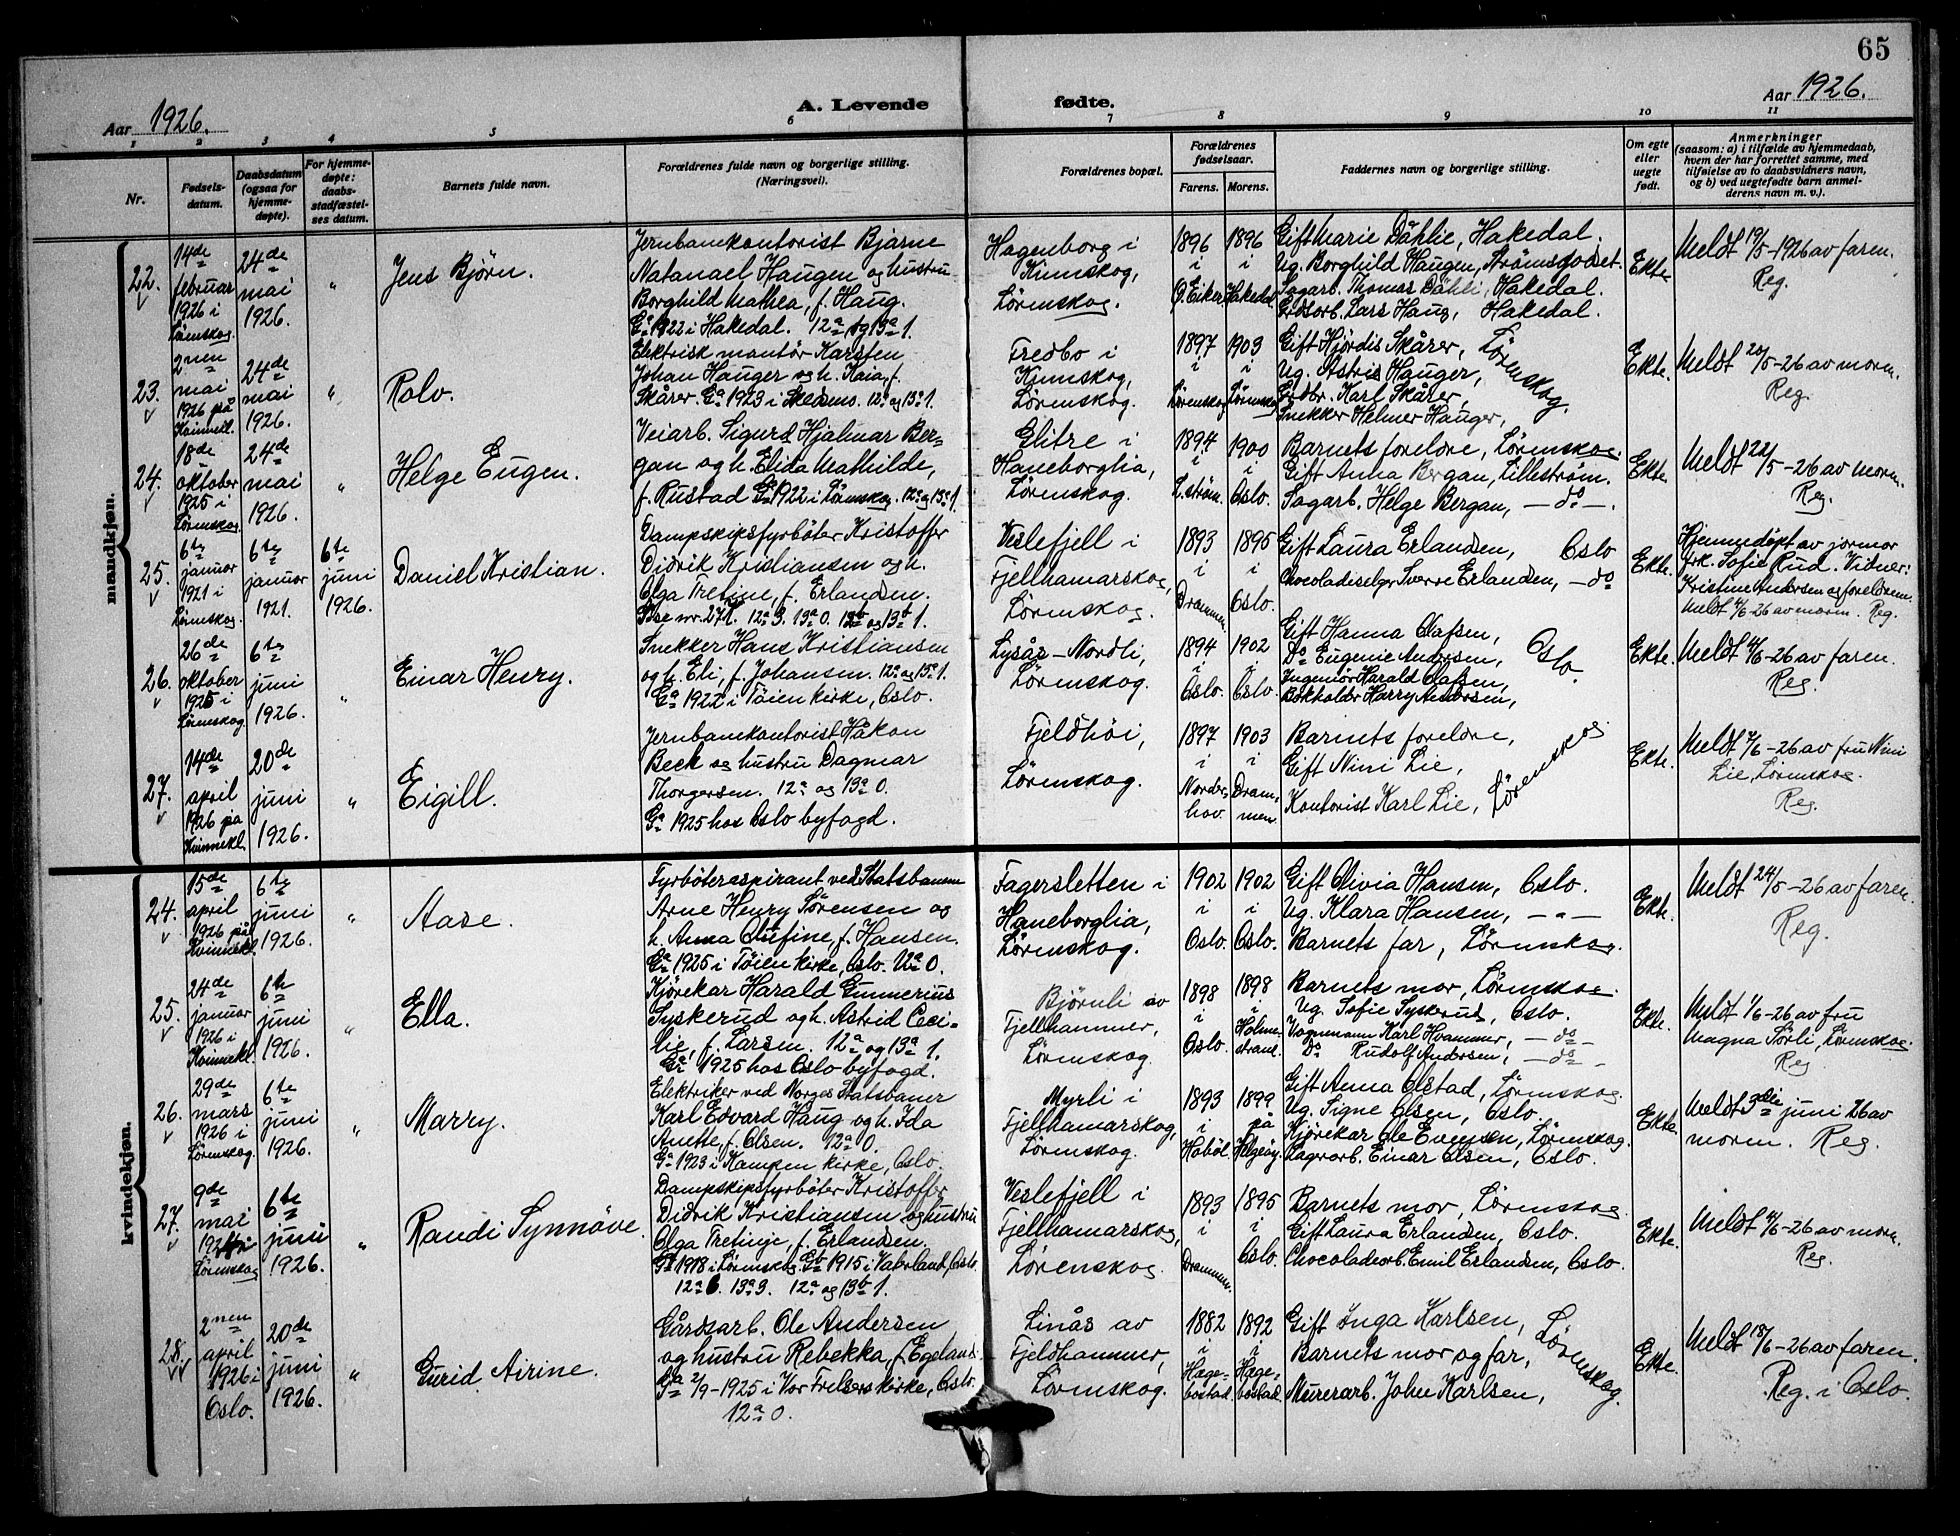 65
Aar 1926.
A. Levende fødte.
Aar 1926.
1 2 3 4 5 6 7 8 9 10 11
Nr.
Fødsels-
datum.
Daabsdatum
(ogsaa for
hjemme-
døpte).
For hjemme-
døpte:
daabs-
stadfæstel-
ses datum.
Barnets fulde navn.
Forældrenes fulde navn og borgerlige stilling.
(Næringsvei).
Forældrenes bopæl.
Forældrenes
fødselsaar.
Farens. Morens.
Faddernes navn og borgerlige stilling.
Om egte
eller
uegte
født.
Anmerkninger
(saasom: a) i tilfælde av hjemmedaab,
hvem der har forrettet samme, med
tilføielse av to daabsvidners navn,
og b) ved uegtefødte barn anmel-
derens navn m. v.).
mandkjøn.
22.
14de
februar
1926 i
Lørenskog.
24de
mai
1926.
"
Jens Bjørn.
Jernbanekontorist Bjarne
Natanael Haugen og hustru
Borghild Mathea, f. Haug.
Ga 1922 i Hakedal. 12a og 13a 1.
Hagenborg i
Kinnskog,
Lørenskog.
1896
i
Ø. Eiker
1896
i
Hakedal
Gift Marie Dåhlie, Hakedal.
Ug. Borghild Haugen, Strømsgodset.
Sagarb. Thomas Dåhli, Hakedal.
Grdsarb. Lars Haug, Hakedal.
Ekte.
Meldt 19/5-1926 av faren.
Reg.
23.
2nen
mai
1926 på
Kvinnekl.
24de
mai
1926.
"
Rolv.
Elektrisk montør Karsten
Johan Hauger og h. Kaia, f.
Skårer. Ga 1923 i Skedsmo. 12a og 13a 1.
Fredbo i
Kinnskog,
Lørenskog.
1897
i
Lørenskog
1903
i
Lørenskog
Gift Hjørdis Skårer,
Ug. Astrid Hauger,
Grdbr. Karl Skårer,
Snekker Helmer Hauger,
Lørenskog.
Ekte.
Meldt 20/5-26 av moren.
Reg.
24.
18de
oktober
1925 i
Lørenskog.
24de
mai
1926.
"
Helge Eugen.
Veiarb. Sigurd Hjalmar Ber-
gan og h. Elida Mathilde,
f. Rustad Ga 1922 i Lørenskog. 12a og 13a 1.
Glitre i
Haneborglia,
Lørenskog.
1894
i
L.strøm.
1900
i
Oslo.
Barnets foreldre, Lørenskog.
Gift Anna Bergan, Lillestrøm.
Sagarb. Helge Bergan, — do —.
Ekte.
Meldt 22/5-26 av moren.
Reg.
25.
6te
januar
1921 i
Lørenskog.
6te
januar
1921.
6te
juni
1926.
Daniel Kristian.
Dampskipsfyrbøter Kristoffer
Didrik Kristiansen og h.
Olga Tretine, f. Erlandsen.
Se nr. 27 k. 12a 3. 13a 0. 12b og 13b 1.
Veslefjell i
Fjellhamarskog,
Lørenskog.
1893
i
Drammen.
1895
i
Oslo.
Gift Laura Erlandsen, Oslo
Chocoladeselger Sverre Erlandsen, — do
Ekte.
Hjemmedøpt av jormor
frk. Sofie Rud. Vidner:
Kristine Andersen og foreldrene.
Meldt 4/6-26 av moren. Reg.
26.
26de
oktober
1925 i
Lørenskog.
6te
juni
1926.
"
Einar Henry.
Snekker Hans Kristiansen
og h. Eli, f. Johansen. 12a og 13a 1.
Ga 1922 i Tøien kirke, Oslo.
Lysås – Nordli,
Lørenskog.
1894
i
Oslo.
1902
i
Oslo.
Gift Hanna Olafsen,
Do Eugenie Andersen,
Ingeniør Harald Olafsen,
Bokholder Harry Andersen,
Oslo.
Ekte.
Meldt 4/6-26 av faren.
Reg.
27.
14de
april
1926 på
Kvinnekl.
20de
juni
1926.
"
Eigill.
Jernbanekontorist Håkon
Beck og hustru Dagmar
Thorgersen. 12a og 13a 0.
Ga 1925 hos Oslo byfogd.
Fjeldhøi,
Lørenskog.
1897
i
Norder-
hov.
1903
i
Dram-
men.
Barnets foreldre,
Gift Nini Lie,
Kontorist Karl Lie,
Lørenskog
Ekte.
Meldt 7/6-26 av fru Nini
Lie, Lørenskog.
Reg.
kvindekjøn.
24.
15de
april
1926 på
Kvinnekl.
6te
juni
1926.
"
Aase.
Fyrbøteraspirant ved Statsbanene
Arne Henry Sørensen og
h. Anna Olufine, f. Hansen.
Ga 1925 i Tøien kirke, Oslo. 12a 0.
Fagersletten i
Haneborglia,
Lørenskog.
1902
i
Oslo.
1902
i
Oslo.
Gift Olivia Hansen, Oslo.
Ug. Klara Hansen, — " —
Barnets far, Lørenskog.
Ekte.
Meldt 24/5-26 av faren.
Reg.
25.
24de
januar
1926 i
Kvinnekl.
6te
juni
1926.
"
Ella.
Kjørekar Harald Gunnerius
Syskerud og h. Astrid Ceci-
lie, f. Larsen. 12a og 13a 1.
Ga 1925 hos Oslo byfogd.
Bjørnli av
Fjellhammer,
Lørenskog.
1898
i
Oslo.
1898
i
Holme-
strand.
Barnets mor, Lørenskog.
Ug. Sofie Syskerud, Oslo.
Vognmann Karl Hvammer, — do —
Do Rudolf Andersen, — do —
Ekte.
Meldt 1/6-26 av fru
Magna Sørli, Lørenskog.
Reg
26.
29de
mars
1926 i
Lørenskog.
6te
juni
1926.
"
Marry.
Elektriker ved Norges Statsbaner
Karl Edvard Haug og h. Ida
Anette, f. Olsen. 12a 0.
Ga 1923 i Kampen kirke, Oslo.
Myrli i
Fjellhamarskog,
Lørenskog.
1893
i
Hobøl.
1899
på
Helgøy.
Gift Anna Olstad, Lørenskog.
Ug. Signe Olsen, Oslo.
Kjørekar Ole Evensen, Lørenskog.
Lagerarb. Einar Olsen, Oslo.
Ekte.
Meldt 3die juni 26 av
moren. Reg.
27.
9de
mai
Lørenskog
6te
juni
1926.
"
Randi Synnøve.
Dampskipsfyrbøter Kristoffer
Didrik Kristiansen og hustru
Olga Tretinje, f. Erlandsen.
Ga 1918 i Lørenskog. Gb 1915 i Vaterland, Oslo.
12a 6. 13a 3. 12b og 13b 1.
Veslefjell i
Fjellhamarskog,
Lørenskog.
1893
i
Drammen.
1895
i
Oslo.
Barnets mor, Lørenskog.
Gift Laura Erlandsen, Oslo.
Chocoladearb. Emil Erlandsen, Oslo.
Ekte.
Meldt 4/6-26 av moren.
Reg.
28.
2nen
april
1926 i
Oslo.
20de
juni
1926.
"
Gurid Airine.
Gårdsarb. Ole Andersen
og hustru Rebekka, f. Egeland.
Ga 2/9-1925 i Vor Frelsers kirke, Oslo.
12a 0.
Linås av
Fjeldhammer,
Lørenskog.
1882
i
Hæge-
bostad.
1892
i
Hæge-
bostad.
Gift Inga Karlsen,
Barnets mor og far,
Murerarb. John Karlsen,
Lørenskog.
Ekte.
Meldt 18/6-26 av faren.
Reg. i Oslo.